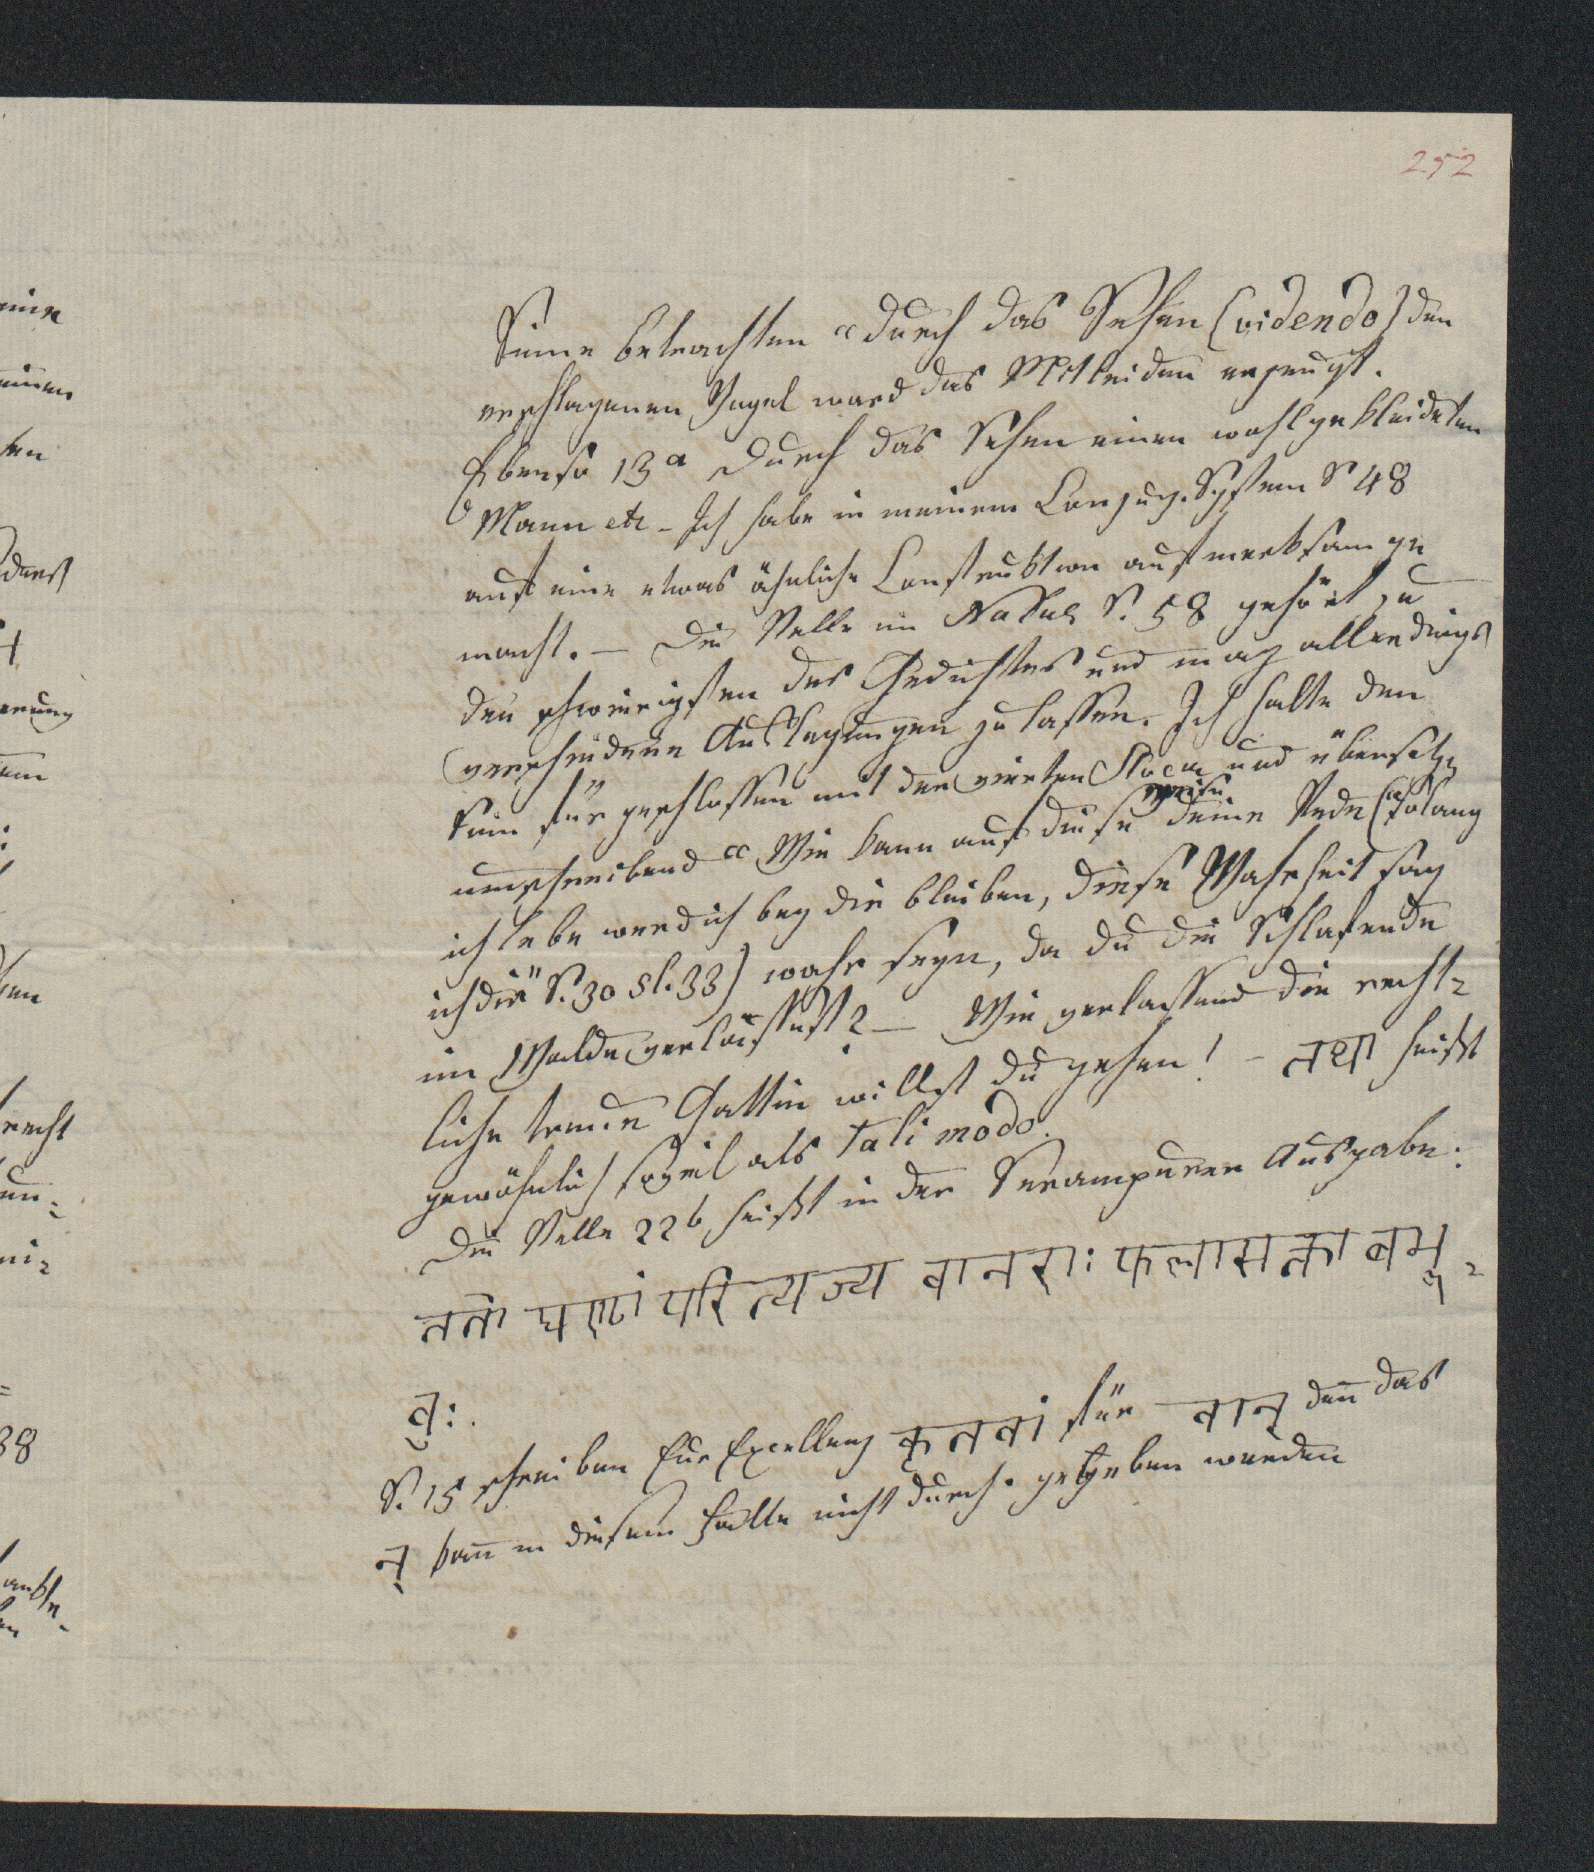 252
Sinne betrachten „durch das Sehen (videndo) den
erschlagenen Vogel ward das Mitleiden erzeugt.
Ebenso 13a durch das Sehen einen wohlgekleideten
Mann etc - Ich habe in meinem Conjug. System S 48
auf eine etwas ähnliche Construktion aufmerksam ge
macht. — Die Stelle im Nalus S. 58 gehört zu
den schwierigsten des Gedichtes und mag allerdings
verschiedene Auslegungen zulassen. Ich halte den
Sinn für geschlossen mit der vierten Sloca und übersetze
umschreibend „Wie kann auf diese weise deine Rede („solang
ich lebe werd ich bey dir bleiben, diese Wahrheit sag
ich dir" S. 30 sl. 33) wahr seyn, da du die Schlafende
im Walde verlässest? — Wie verlassend die recht=
liche treue Gattin willst du gehen! - तथा heißt
gewöhnlich soviel als tali modo.
Die Stelle 22b heißt in der Serampurer Ausgabe:
ततो घण्टां परित्यज्य वानराः फलासक्ता बभू=
वुः.
S. 15 schreiben Eur Excellenz कृतवां für वान् den das
न् kan in diesem Falle nicht durch · gegeben werden
eine
einen
durch
erung
recht
38